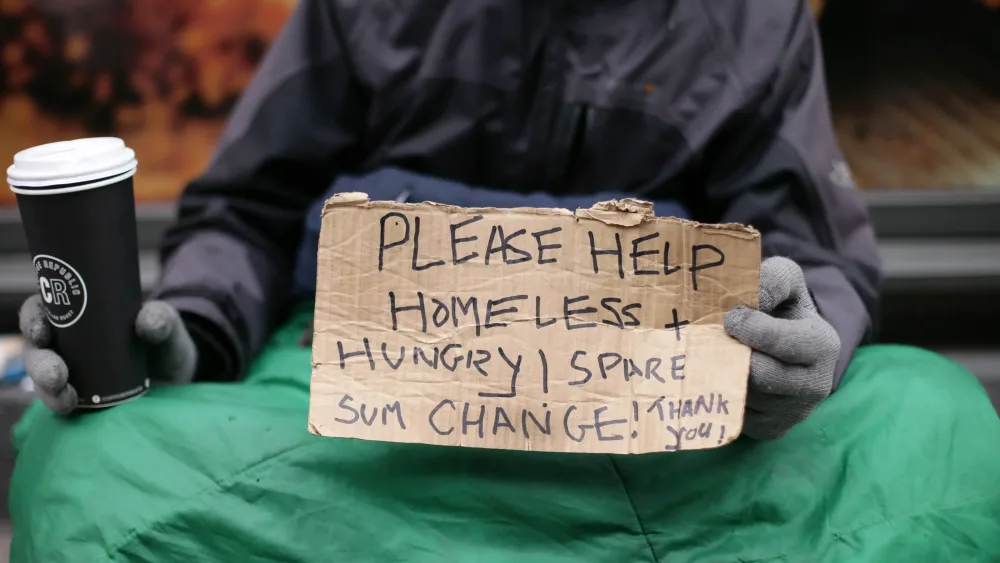 PLEASE HELP
HOMELESS +
HUNGRY | SPARE
SUM CHANGE! THANK
YOU!
REPUBLIC
CR